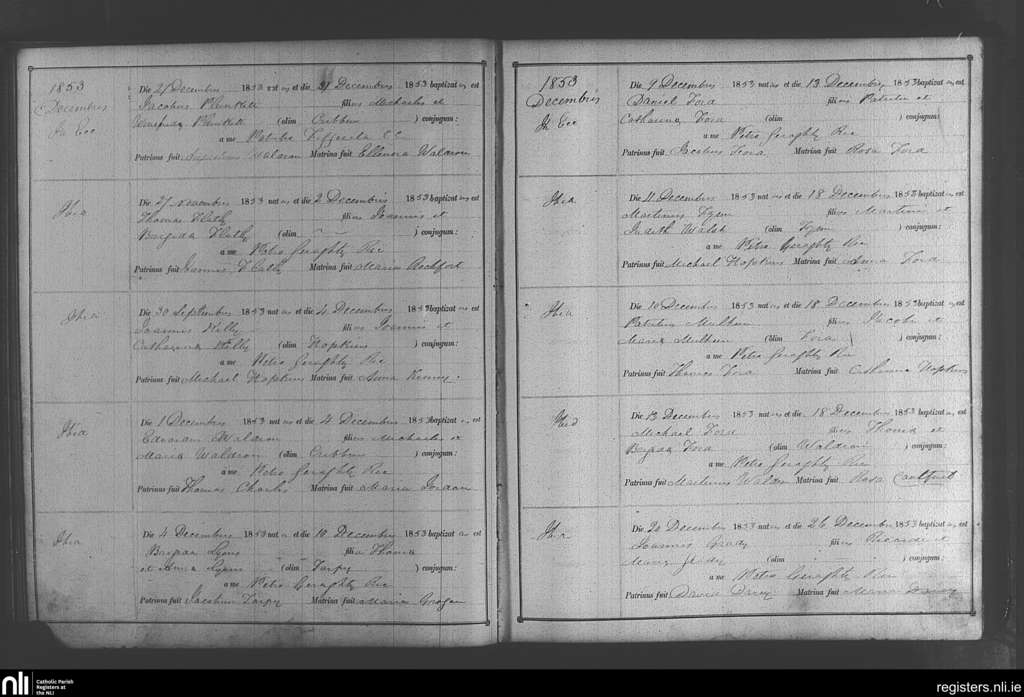 1853
Decembris
In Ecc
Die 21 Decembris 1853 natus et die 21 Decembris 1853 baptizatus est
Jacobus Plunkett filius Michaelis et
Plunkett (olim Cribbin ) conjugum:
a me C C
Patrinus fuit Waldron Matrina fuit Ellenora Waldron
Ibid
Die 27 Novembris 1853 natus et die 2 Decembris 1853 baptizatus est
Thomas filius Joannis et
Brigida (olim ) conjugum:
a me Petro Geraghty Ric
Patrinus fuit Joannes Matrina fuit Maria Rochfort
Ibid
Die 30 Septembris 1853 natus et die 4 Decembris 1853 baptizatus est
Joannes Kelly filius Joannis et
Catharina Kelly (olim Hopkins ) conjugum:
a me Petro Geraghty Ric
Patrinus fuit Michael Hopkins Matrina fuit Anna Kenny
Ibid
Die 1 Decembris 1853 natus et die 4 Decembris 1853 baptizatus est
Waldron filius Michaelis et
Maria Waldron (olim Cribbin ) conjugum:
a me Petro Geraghty Ric
Patrinus fuit Thomas Charles Matrina fuit Maria Jordan
Ibid
Die 4 Decembris 1853 nata et die 10 Decembris 1853 baptizata est
Brigida Lyons filia Thoma
et Anna Lyons (olim Tarpy ) conjugum:
a me Petro Geraghty Ric
Patrinus fuit Jacobus Tarpy Matrina fuit Maria Grogan
1853
Decembris
In Ecc
Die 9 Decembris 1853 natus et die 13 Decembris 1853 baptizatus est
Daniel Ford filius Patritii et
Catharina Ford (olim ) conjugum:
a me Petro Geraghty Ric
Patrinus fuit Jacobus Ford Matrina fuit Rosa Ford
Ibid
Die 11 Decembris 1853 natus et die 18 Decembris 1853 baptizatus est
Martinus filius Martini et
Judith Walsh (olim ) conjugum:
a me Petro Geraghty Ric
Patrinus fuit Michael Hopkins Matrina fuit Anna Ford
Ibid
Die 10 Decembris 1853 natus et die 18 Decembris 1853 baptizatus est
Patritius Mulhern filius Jacobi et
Maria Mulhern (olim Ford ) conjugum:
a me Petro Geraghty Ric
Patrinus fuit Thomas Ford Matrina fuit Catharina Hopkins
Ibid
Die 13 Decembris 1853 natus et die 18 Decembris 1853 baptizatus est
Michael Ford filius Thoma et
Brigida Ford (olim Waldron ) conjugum:
a me Petro Geraghty Ric
Patrinus fuit Martinus Waldron Matrina fuit Rosa
Ibid
Die 20 Decembris 1853 natus et die 26 Decembris 1853 baptizatus est
Joannes Grady filius Ricardi et
Maria (olim ) conjugum:
a me Petro Geraghty Ric
Patrinus fuit David Matrina fuit Maria
nli
Catholic Parish
Registers at
the NLI
registers.nli.ie